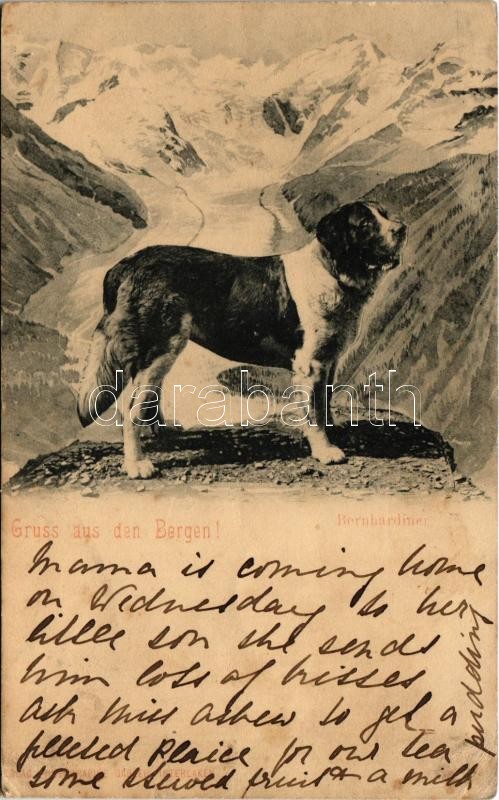 darabanth
Gruss aus den Bergen!
Bernhardiner
Mama is coming home
on Wednesday to her
little son she sends
him lots of kisses
ask Miss Askew to get a
filleted Plaice for our tea
some stewed fruit & a milk
pudding